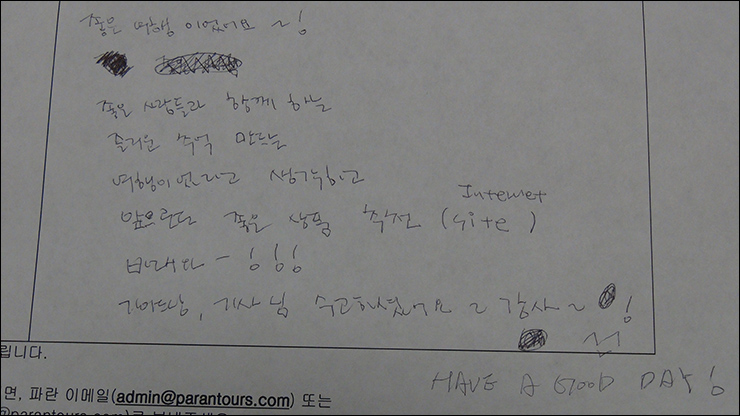 좋은 여행 이었어요 ~!
좋은 사람들과 함께 하는
즐거운 추억 만드는
여행이였다고 생각하고
앞으로도 좋은 상품 추천 (Internet site)
바래다 - ! ! !
가이드님, 기사님 수고하셨어요 ~ 감사 ~ !
HAVE A GOOD DAY !
립니다.
면, 파란 이메일(admin@parantours.com) 또는
@parantours.com)로 보내주세요